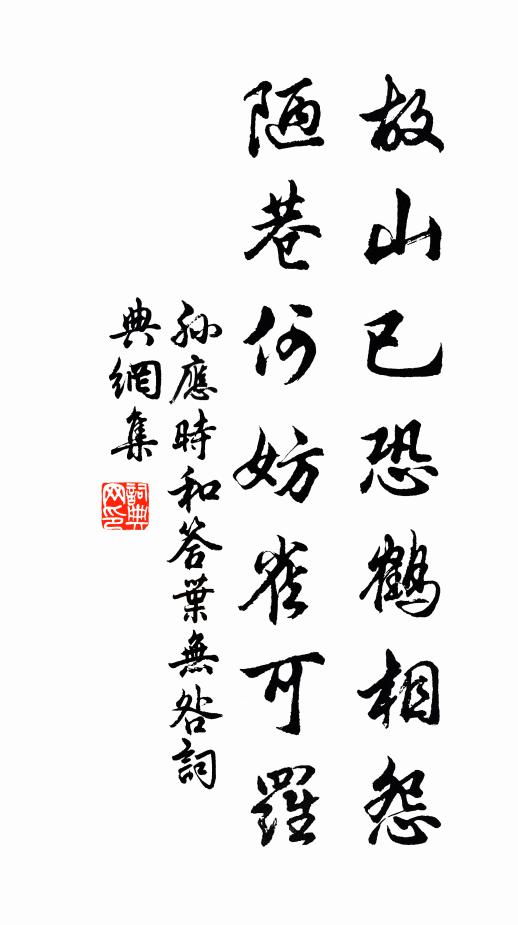 故山已恐鶴相怨
陋巷何妨雀可羅
孫應時和答葉無咎詞
典網集
詞典
网印